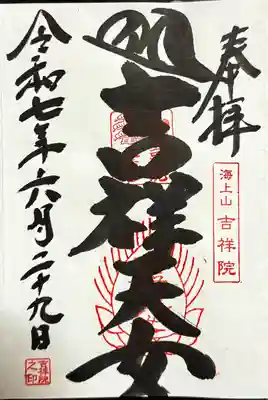 奉拝
海上山 吉祥院
吉祥天女
令和七年六月二十九日